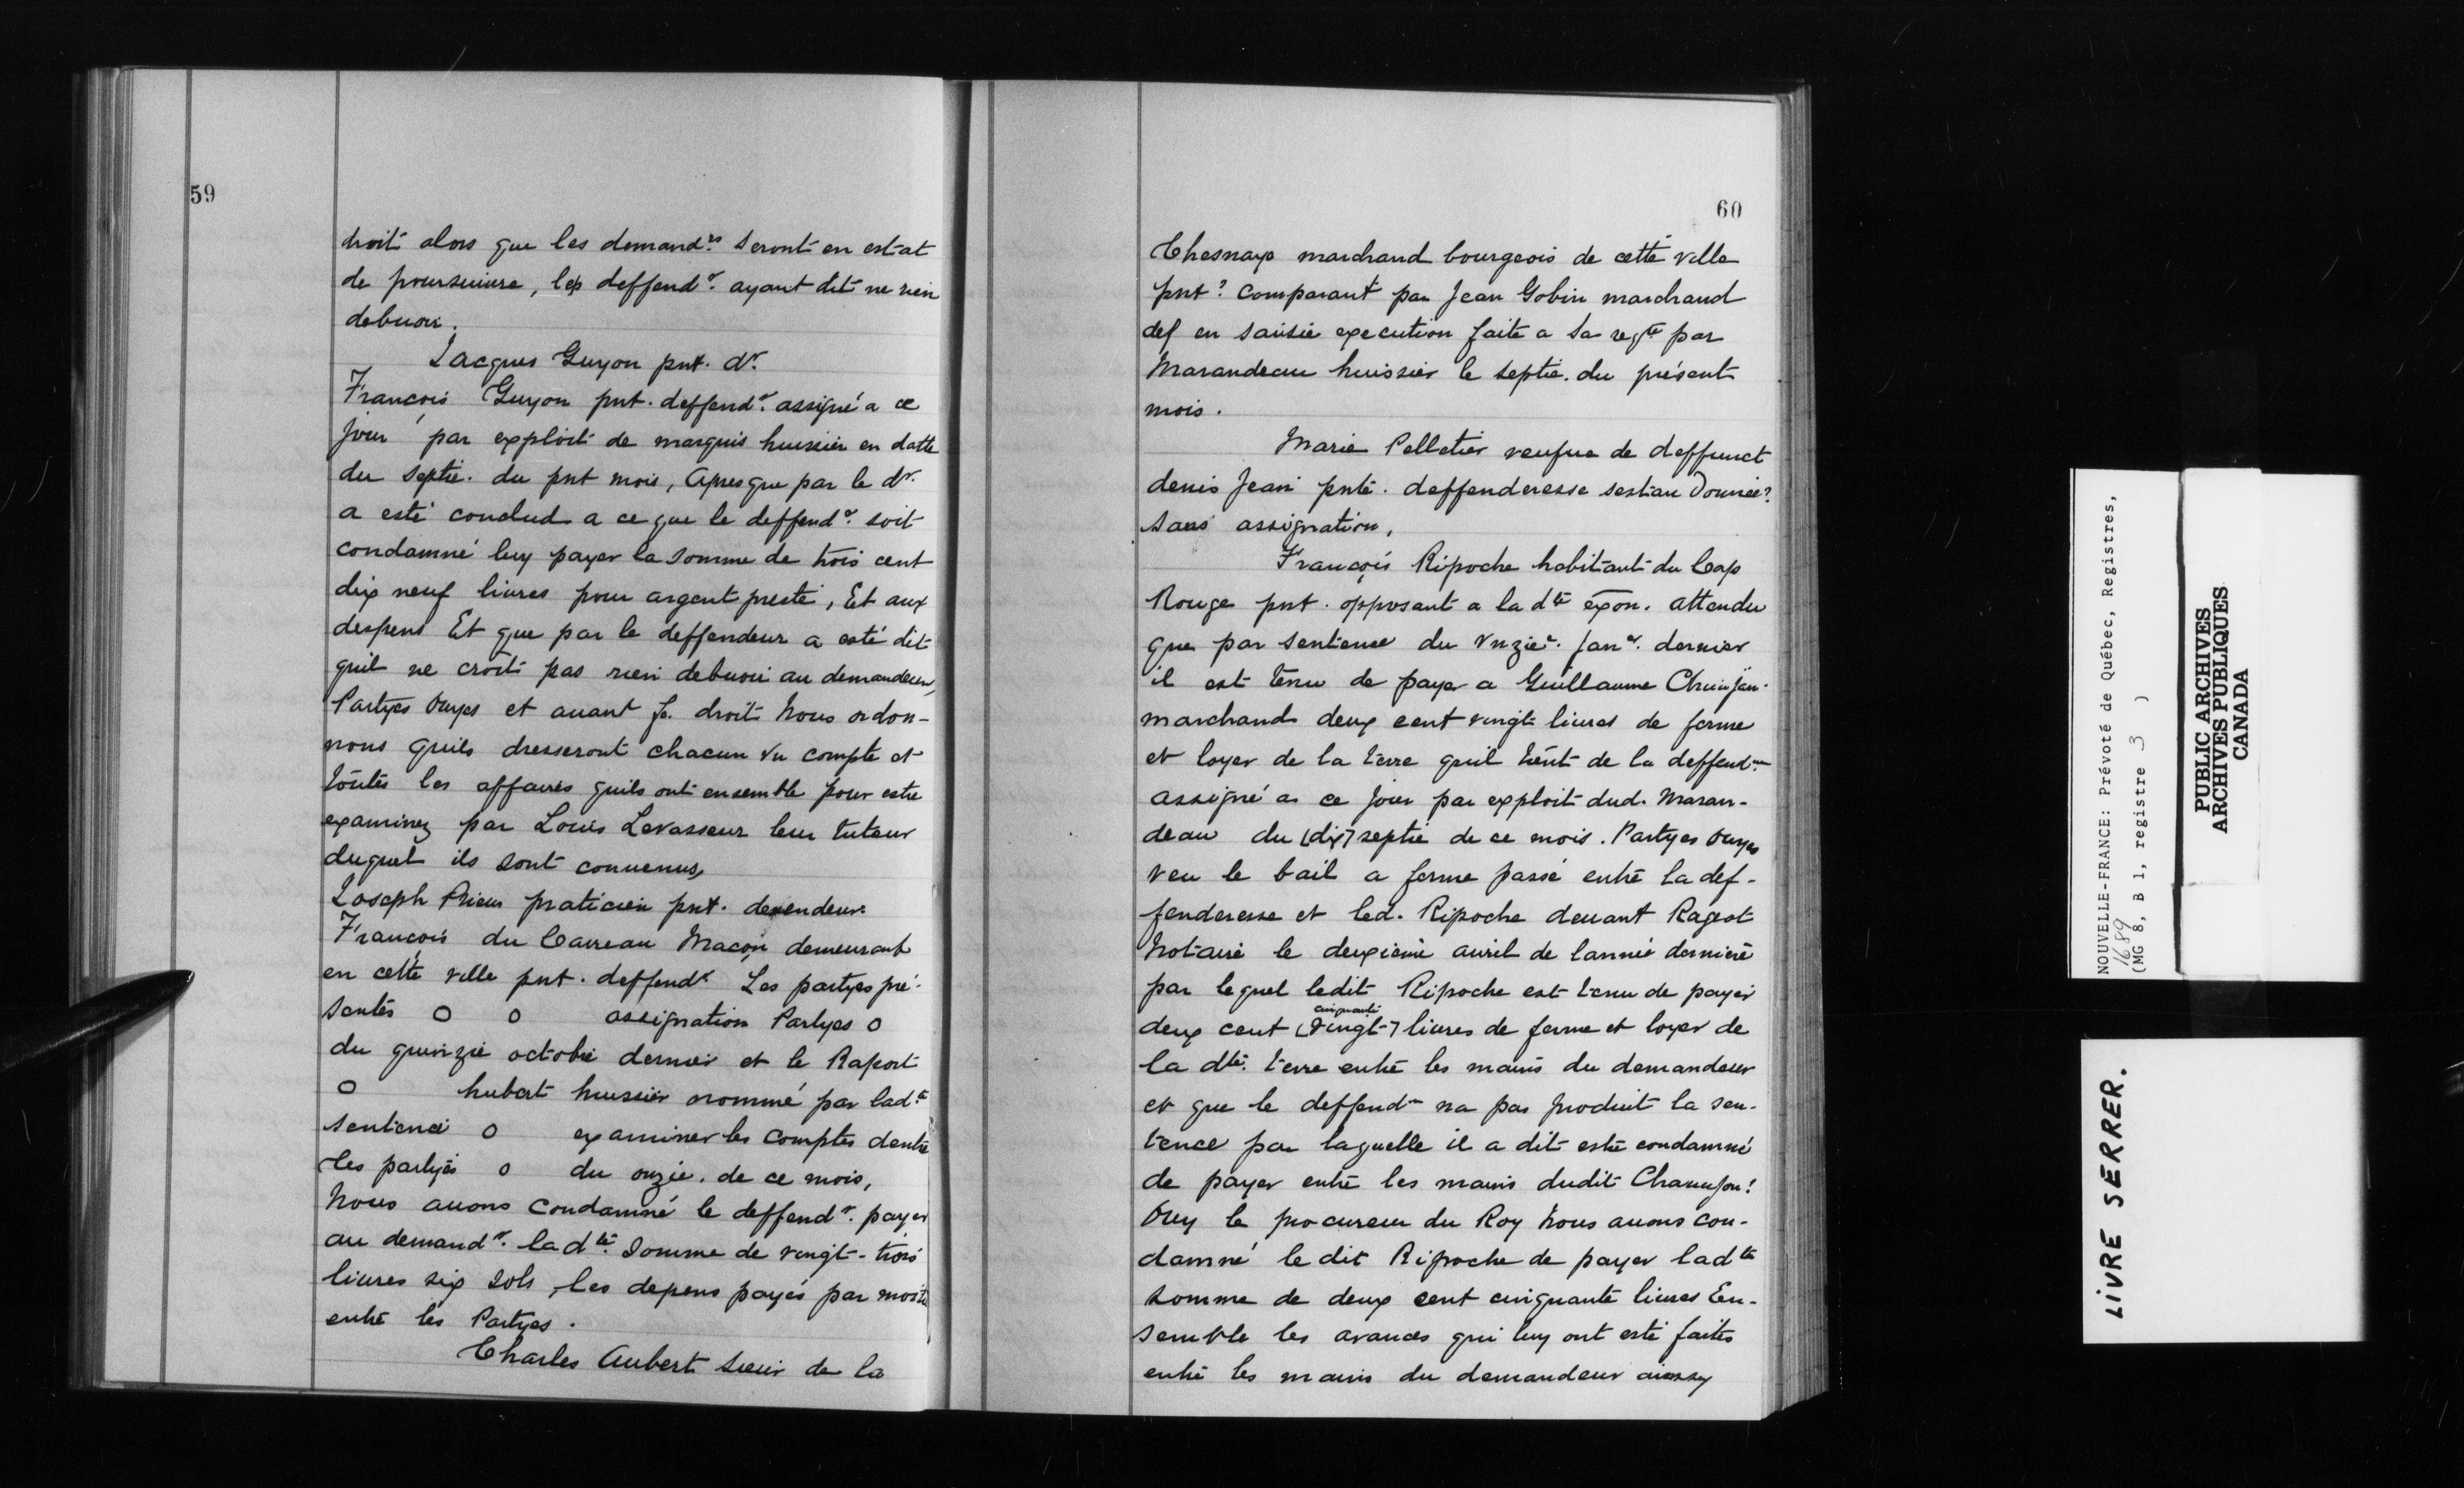 59
droit alors que les demandrs. seront en estat
de poursuiure, les deffendr. ayant dit ne rien
debuoir.
Jacques Guyon pnt. dr.
François Guyon pnt. deffendr. assigné a ce
jour par exploit de marquis huissier en datte
du septie. du pnt mois, Apres que par le dr.
a esté conclud a ce que le deffendr. soit
condamné luy payer la somme de trois cent
dix neuf liures pour argent presté, Et aux
despens Et que par le deffendeur a esté dit
quil ne croit pas rien debuoir au demandeur,
Partyes ouyes et auant fe. droit Nous ordon-
nons quils dresseront chacun vn compte et
toutes les affaires quils ont ensemble pour estre
examinez par Louis Levasseur leur tuteur
duquel ils sont conuenus,
Joseph Prieur praticien pnt. demendeur
François du Carreau Maçon demeurant
en cette ville pnt. deffendr Les partyes pré-
sentes o o assignation Partyes o
du quinzie octobre dernier et le Raport
o hubert huissier nommé par ladte
sentence o examiner les comptes dentre
les partyes o du onzie. de ce mois,
Nous auons Condamné le deffendr. payer
au demandr. la dte. somme de vingt-trois
liures six sols, les depens payés par moitie
entre les Partyes.
Charles Aubert sieur de la
60
Chesnaye marchand bourgeois de cette ville
pnt? Comparant par Jean Gobin marchand
def en saisie execution faite a sa reqte par
Marandeau huissier le septie. du présent
mois.
Marie Pelletier veufue de deffunct
denis Jean pnte. deffenderesse sestau Donnée?
sans assignation,
François Ripoche habitant du Cap
Rouge pnt. opposant a la dte exon. attendu
que par sentence du vnzie. Janr. dernier
il est tenu de payer a Guillaume Chanjan.
marchand deux cent vingt liures de ferme
et loyer de la terre quil tient de la deffend.
assigné a ce jour par exploit dud. Maran-
deau du [dix] septie de ce mois. Partyes ouyes
veu le bail a ferme passé entre la def-
fenderesse et led. Ripoche deuant Rageot
Notaire le deuxieme auril de lannée derniere
par lequel ledit Ripoche est tenu de payer
cinquante
deux cent [vingt-] liures de ferme et loyer de
la dte. terre entre les mains du demandeur
et que le deffendr na pas produit la sen-
tence par laquelle il a dit estre condamné
de payer entre les mains dudit Chaunjon!
Ouy le procureur du Roy Nous auons con-
damné le dit Ripoche de payer ladte
somme de deux cent cinquante liures En-
semble les avances qui luy ont esté faites
entre les mains du demandeur aiessy
NOUVELLE-FRANCE: Prévoté de Québec, Registres,
1689
(MG 8, B 1, registre 3 )
PUBLIC ARCHIVES
ARCHIVES PUBLIQUES
CANADA
LIVRE SERRER.